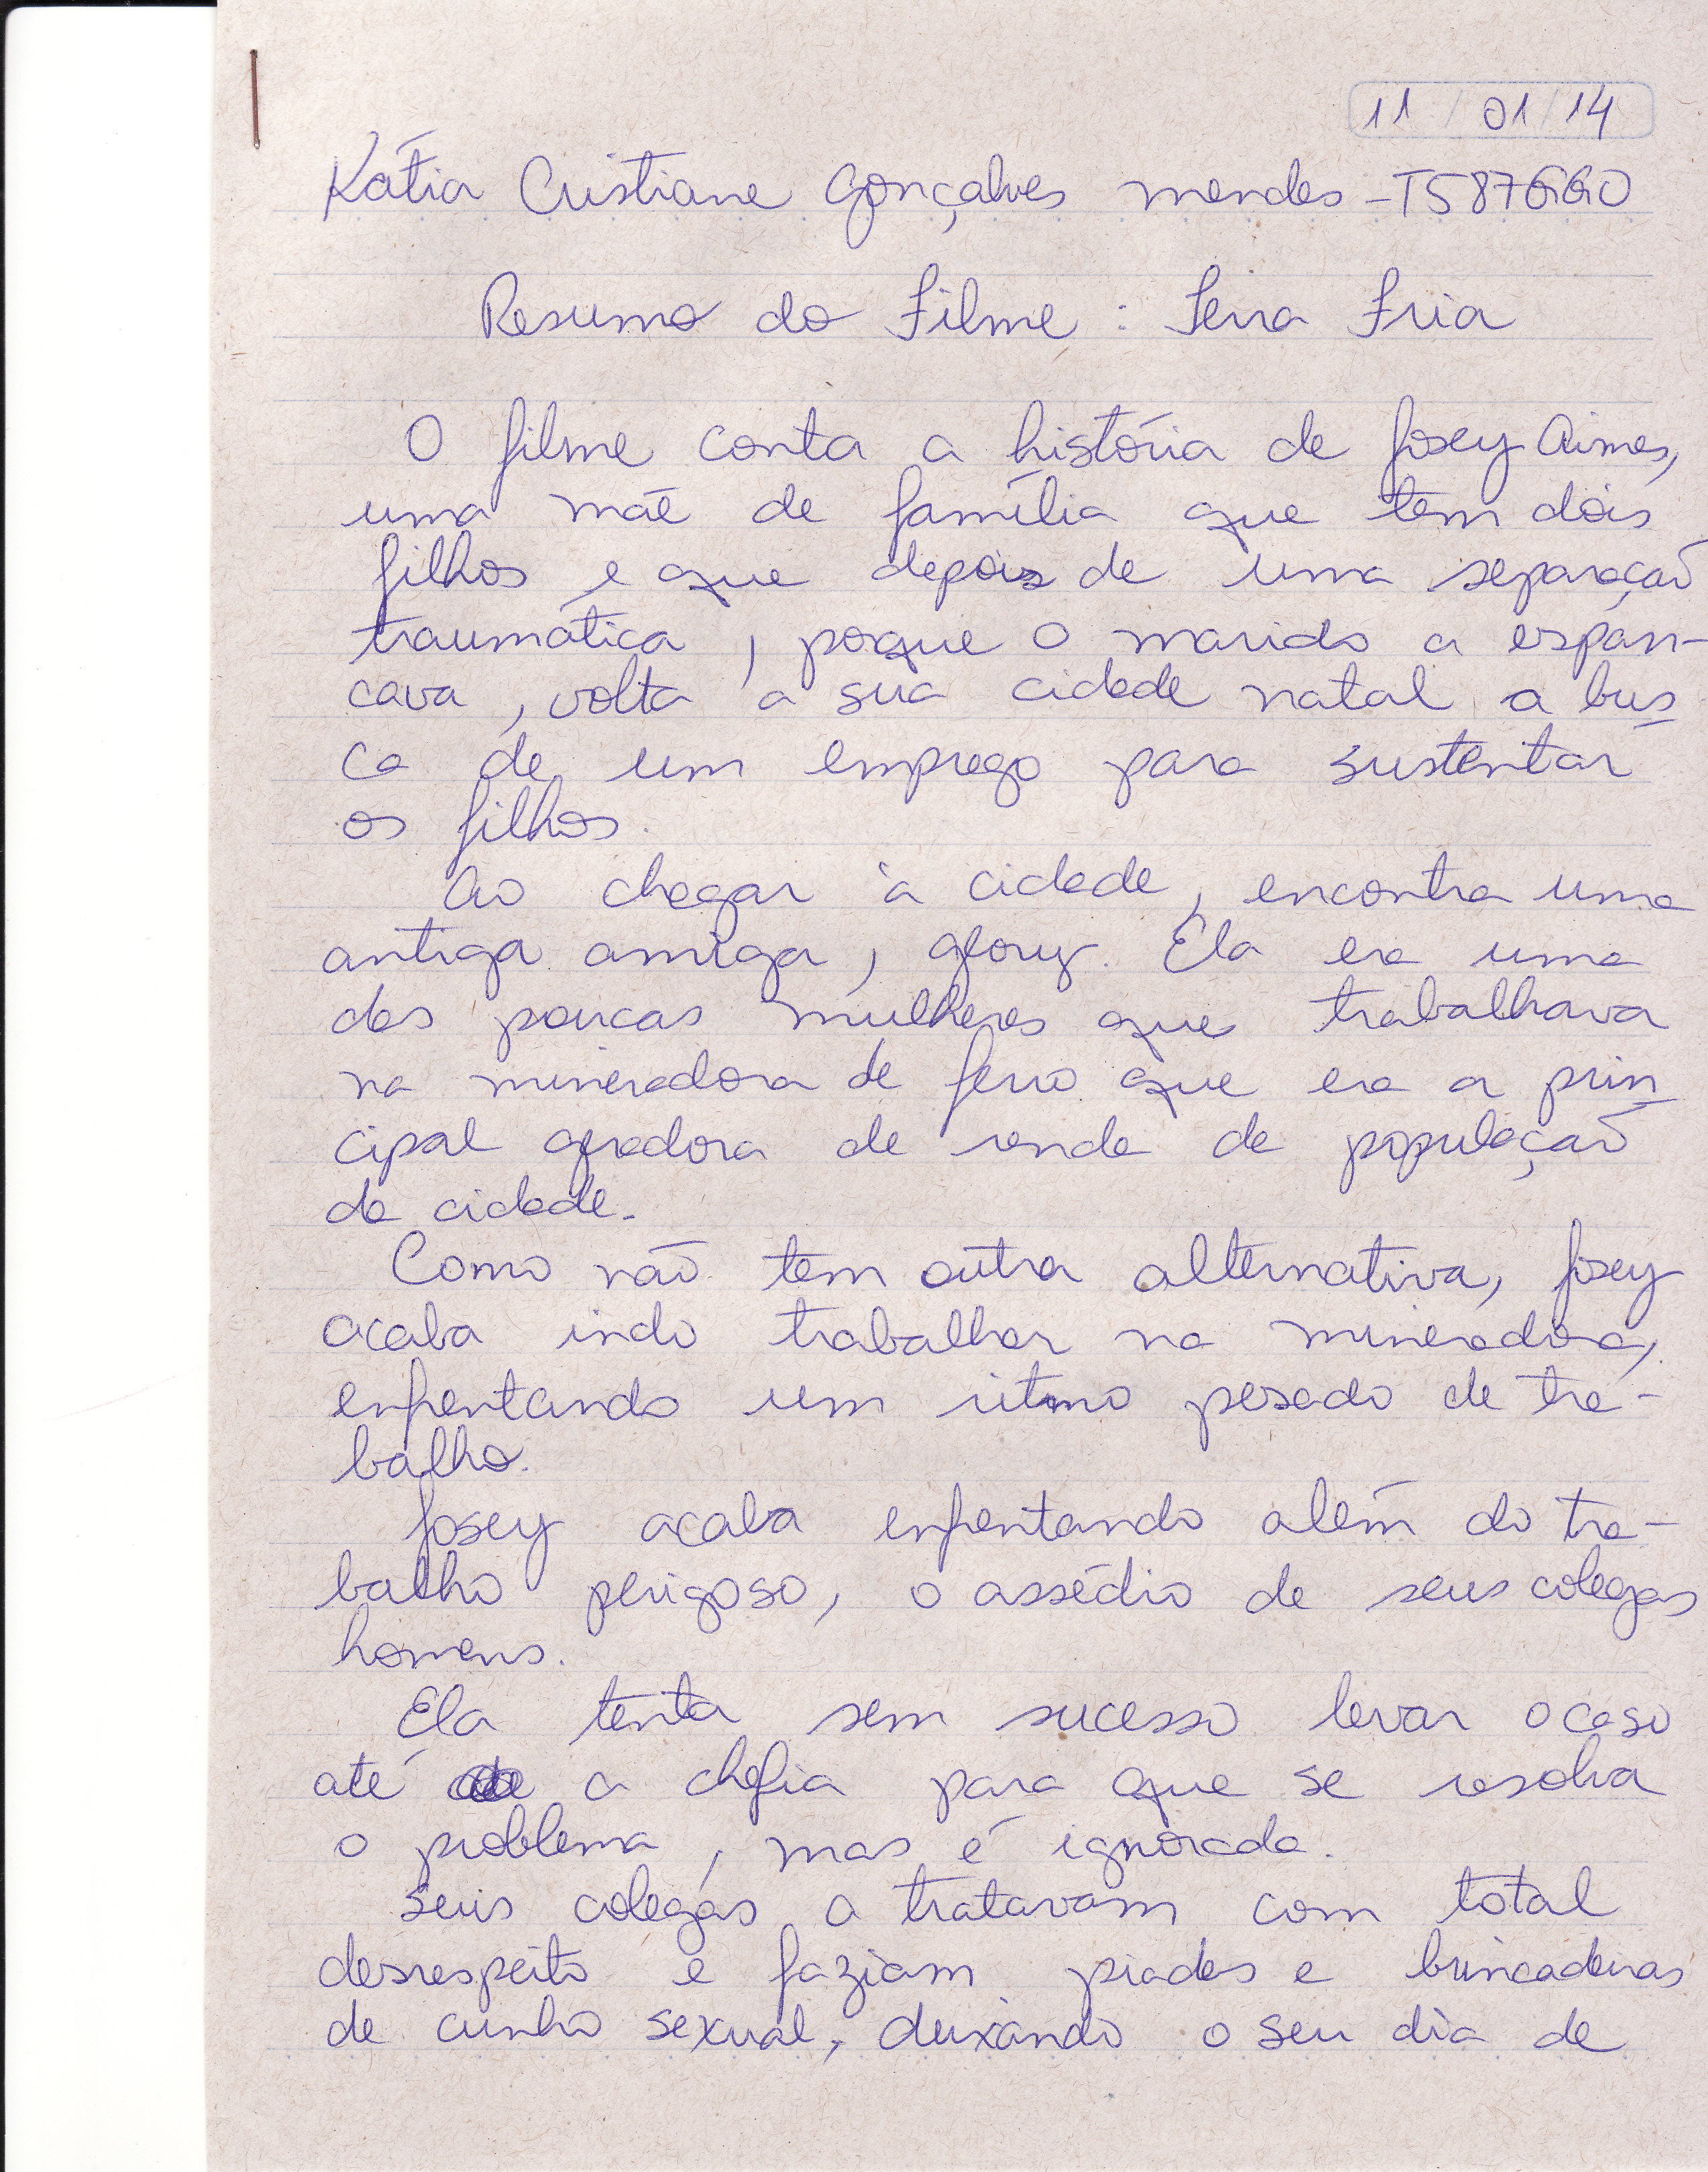 11/01/14
Kátia Cristiane Gonçalves mendes - T5876G0
Resumo do Filme : Terra Fria
O filme conta a história de Josey Aimes,
uma mãe de família que tem dois
filhos e que depois de uma separação
traumática, poque o marido a espan-
cava, volta a sua cidade natal a bus
ca de um emprego para sustentar
os filhos.
Ao chegar à cidade, encontra uma
antiga amiga, glory. Ela era uma
das poucas mulheres que trabalhava
na mineradora de ferro que era a prin
cipal geradora de renda da população
da cidade.
Como não tem outra alternativa, Josey
acaba indo trabalhar na mineradora,
enfrentando um ritmo pesado de tra-
balho.
Josey acaba enfrentando além do tra-
balho perigoso, o assédio de seus colegas
homens.
Ela tenta sem sucesso levar o caso
até a chefia para que se resolva
o problema, mas é ignorada.
Seus colegas a tratavam com total
desrespeito e faziam piadas e brincadeiras
de cunho sexual, deixando o seu dia de